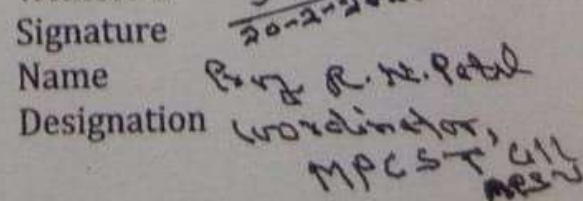 Signature 20-2-20
Name Prof R. N. Patel
Designation Coordinator,
MPCST Cell